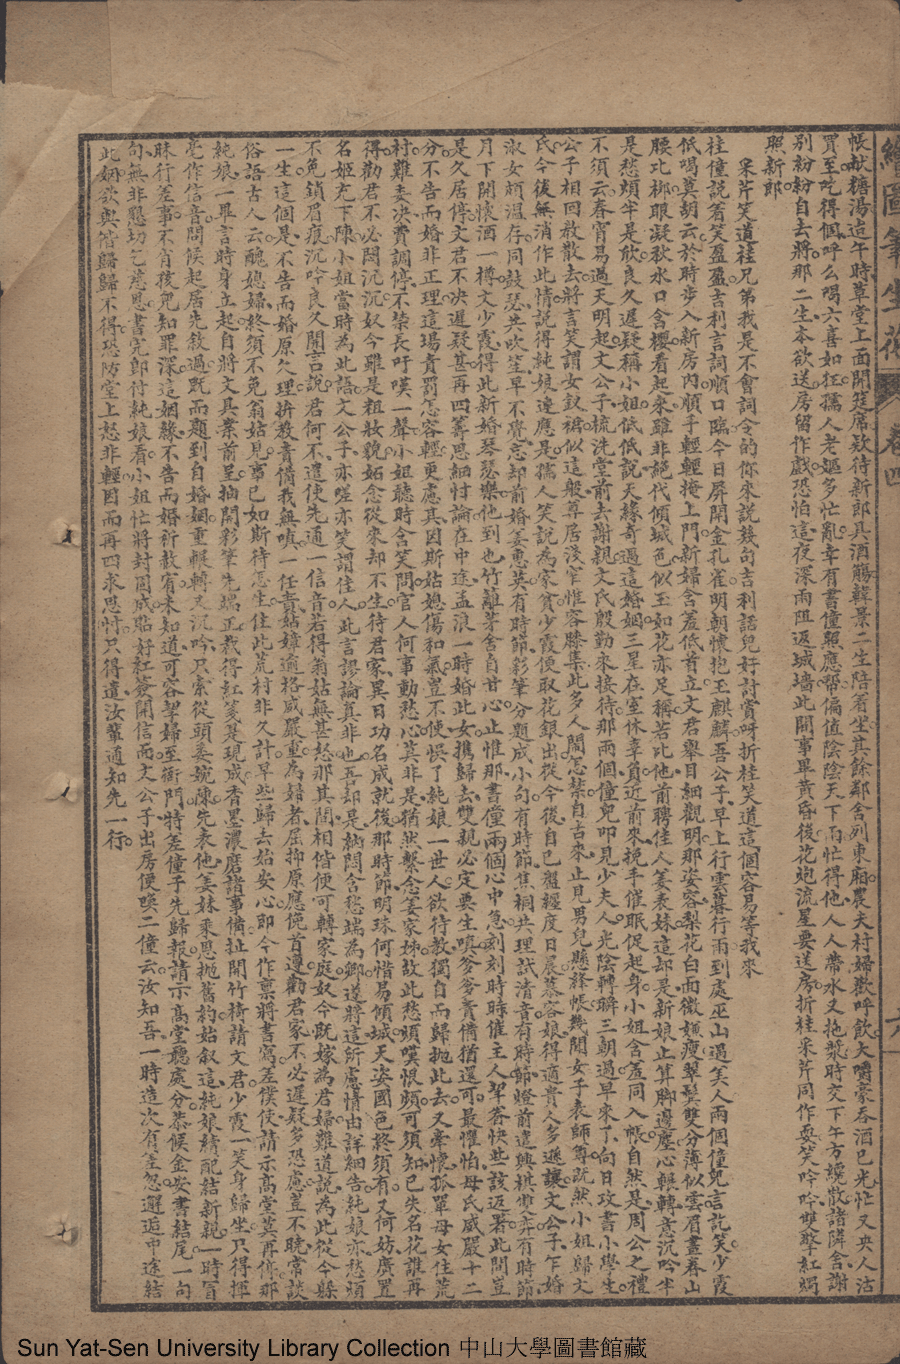 繪圖筆生花 卷四 六一
帳献糖湯這午時草堂上面開筵席欵待新郎具酒觴韓景二生陪着坐其餘鄰舍列東廂農夫村婦歡呼飲大嚼豪吞酒已光忙又央人沽
買至吃得個呼么喝六喜如狂孺人老嫗多忙亂幸有書僮照應帮偏值陰陰天下雨忙得他人人帶水又拖漿時交下午方纔散諸隣舍謝
別紛紛自去將那二生本欲送房留作戲恐怕這夜深雨阻返城墻此開事畢黃昏後花炮流星要送房折桂采芹同作耍笑吟吟雙擎紅燭
照新郎
采芹笑道桂兄弟我是不會詞令的你來説幾句吉利話兒好討賞呀折桂笑道這個容易等我來
桂僮説着笑盈盈吉利言詞順口臨今日屏開金孔雀明朝懷抱玉麒麟吾公子早上行雲暮行雨到處巫山遇美人兩個僮兒言訖笑少霞
低喝莫胡云於時步入新房內順手輕輕掩上門新婦含羞低首立文君舉目細觀明那姿容梨花白面微嫌瘦犁髮雙分薄似雲眉畫春山
腰比柳眼凝秋水口含櫻看起來雖非絕代傾城色似玉如花亦足稱若比他前聘佳人姜表妹這却是新娘止算脚邊塵心輾轉意沉吟半
是愁煩半是欣良久遲疑稱小姐低低説天緣奇遇這婚姻三星在室休辜負近前來挽手催眠促起身小姐含羞同入帳自然是周公之禮
不須云春宵易過天明起文公子梳洗堂前去謝親文氏殷勤來接待那兩個僮兒叩見少夫人光陰轉瞬三朝過早來了向日攻書小學生
公子相回敎散去將言笑謂女釵裙似這般尊居淺窄惟容膝集此多人鬧怎禁自古來止見男兒懸絳帳幾聞女子表師尊説然小姐歸文
氏今後無消作此情説得純娘連應是孺人笑説為家貧少霞便取花銀出從今後自己盤纏度日晨慕容娘得適貴人多遜讓文公子乍婚
淑女頗溫存同鼓瑟共吹笙早不覺忘却前婚姜蕙英有時節彩筆分題成小句有時節焦桐共理試清音有時節燈前遣興棋雙弈有時節
月下開懷酒一樽文少霞得此新婚琴瑟樂他到也竹籬茅舍自甘心止惟那書僮兩個心中急刻刻時時催主人幫荅快些該返署此間豈
是久居停文君不决遲疑甚再四籌思細忖論在中途孟浪一時婚此女携歸去雙親必定要生嗔爹爹責備猶還可最懼怕母氏威嚴十二
分不告而婚非正理這場責罰怎容輕更慮其因斯姑媳傷和氣豈不使悞了純娘一世人欲待教獨自而歸抛此去又牽懷孤單母女住荒
村難委决費調停不禁長吁嘆一聲小姐聽時含笑問官人何事動愁心莫非是猶然繫念姜家姊故此愁煩嘆恨頻可須知已失名花誰再
得勸君不必悶沉沉奴今雖是粗粧貌妬念從來却不生待君家異日功名成就後那時節明珠何惜易傾城天姿國色終須有又何妨廣置
名姬充下陳小姐當時為此語文公子亦嗟亦笑謂佳人此言謬論真非也吾却是納悶含愁端為卿遂將這所慮情由詳細告純娘亦愁煩
不免鎖眉痕沉吟良久開言說君何不遣使先通一信音若得翁姑無甚怒那其間相偕便可轉家庭奴今既嫁為君婦難道説為此從今躲
一生這個是不告而婚原欠理拚教責備我無嗔一任責姑嫜逾格威嚴重為婦者屈抑原應俛首遵勸君家不必遲疑多恐慮豈不曉常談
俗語古人云醜媳婦終須不免翁姑見事已如斯待怎生住此荒村非久計早些歸去始安心即今作禀將書寫差僕使請示高堂莫再停那
純娘一畢言時身立起自將文具案前呈抽開彩筆先端正裁得紅箋是現成香墨濃磨諸事備扯開竹椅請文君少霞一笑身歸坐只得揮
毫作信音問候起居先敘過既而題到自婚姻重輾轉又沉吟只索從頭委婉陳先表他姜妹乘思抛舊約姑叙這純娘續配結新親一時冒
昧行差事不肖孩兒知罪深這姻緣不告而婚祈赦宥未知道可容挈婦至衙門特差僮子先歸報請示高堂聽處分恭候金安書結尾一句
句無非懇切乞慈恩書完即付純娘看小姐忙將封固成貼好紅簽開信面文公子出房便喚二僮云汝知吾一時造次有差忽邂逅中途結
此姻欲與偕歸歸不得恐防堂上怒非輕因而再四求思忖只得遣汝輩通知先一行
Sun Yat-Sen University Library Collection 中山大學圖書館藏